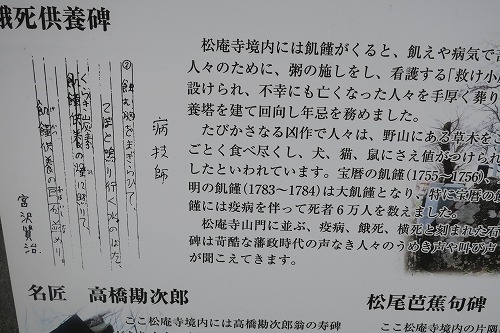 餓死供養碑
松庵寺境内には飢饉がくると、飢えや病気で
人々のために、粥の施しをし、看護する「救け小
設けられ、不幸にも亡くなった人々を手厚く葬り
養塔を建て回向し年忌を務めました。
たびかさなる凶作で人々は、野山にある草木をこ
ごとく食べ尽くし、犬、猫、鼠にさえ値がつけられ
したといわれています。宝暦の飢饉(1755~1756)、
明の飢饉(1783~1784)は大飢饉となり、特に宝暦の飢
饉には疫病を伴って死者6万人を数えました。
松庵寺山門に並ぶ、疫病、餓死、横死と刻まれた石
碑は苛酷な藩政時代の声なき人々のうめき声や叫び声
が聞こえてきます。
病技師
宮沢賢治
名匠 高橋勘次郎
ここ松庵寺境内には高橋勘次郎翁の寿碑
松尾芭蕉句碑
ここ松庵寺境内の片隅